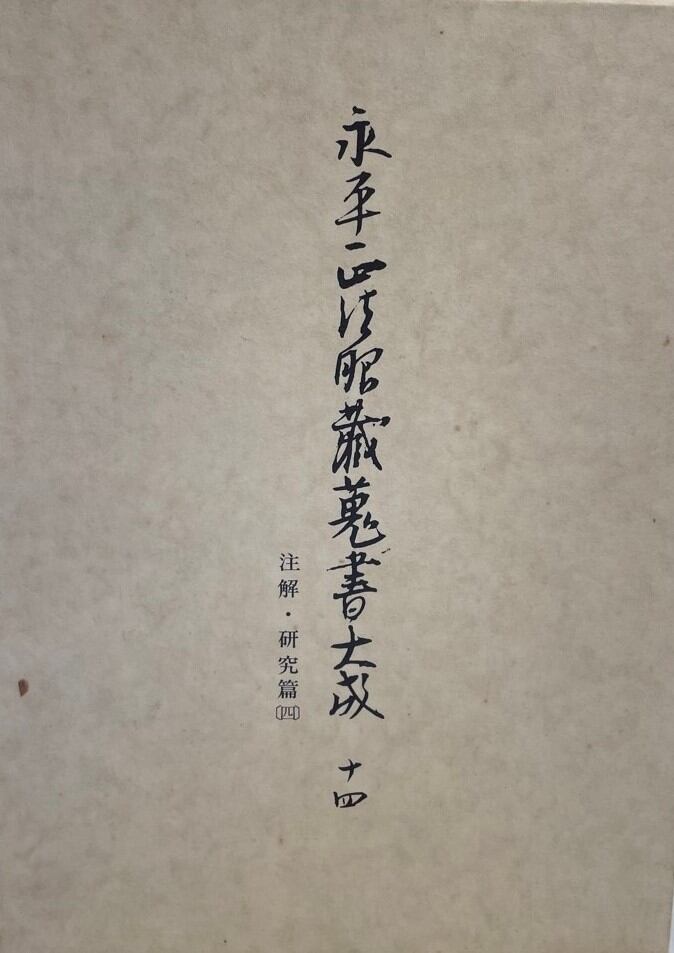 永平正法眼藏蒐書大成 十四
注解・研究篇〔四〕